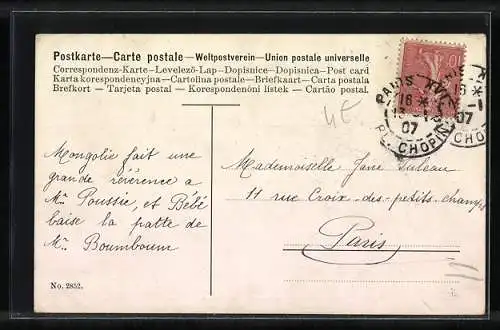 Postkarte—Carte postale—Weltpostverein—Union postale universelle
Correspondenz-Karte—Levelező-Lap—Dopisnice—Dopisnica—Post card
Karta korespondencyjna—Cartolina postale—Briefkaart—Carta postala
Brefkort — Tarjeta postal — Korespondenční lístek — Cartão postal
10
PARIS
16
07
PL. CHOPIN
16
07
CHOPIN
4E.
Mongolie fait une
grande révérence a
Mr Poussie, et Bébé
baise la patte de
Mr. Boumboum
Mademoiselle Jane
11 rue Croix-des-petits-champs
Paris
No. 2852.